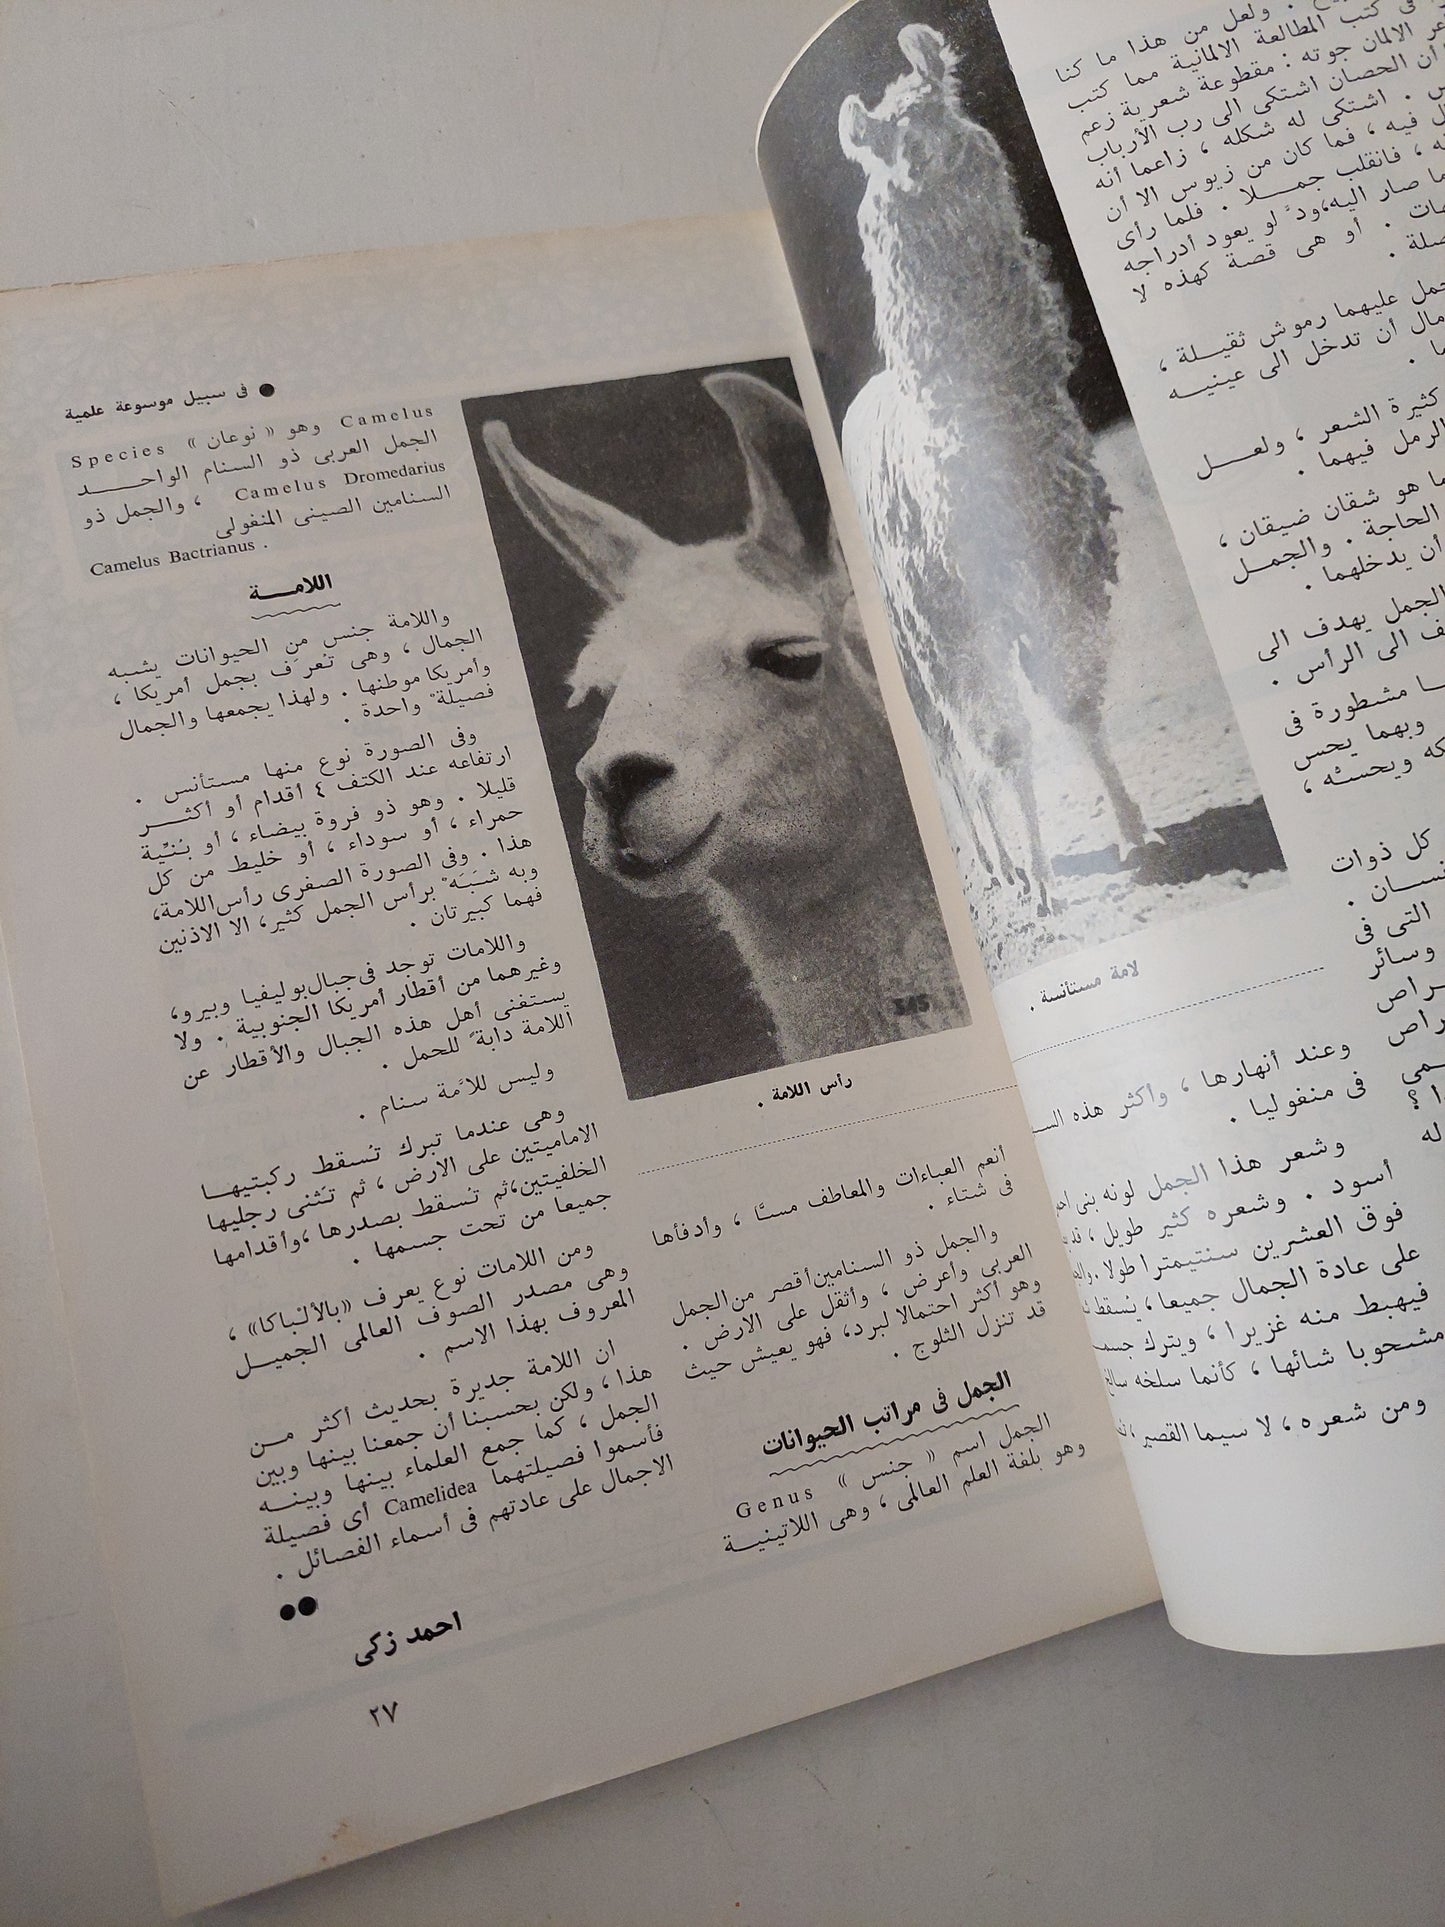 ولعل من هذا ما كنا
فى كتب المطالعة الالمانية مما كتب
الالمان جوته : مقطوعة شعرية زعم
أن الحصان اشتكى الى رب الأرباب
. اشتكى له شكله ، زاعما أنه
فيه ، فما كان من زيوس الا أن
، فانقلب جمـلا . فلما رأى
ما صار اليه، ودّ لو يعود أدراجه
. أو هى قصة كهذه لا
عليهما رموش ثقيلة ،
أن تدخل الى عينيه
كثيرة الشعر ، ولعل
الرمل فيهما .
هو شقان ضيقان ،
الحاجة . والجمل
أن يدخلهما .
الجمل يهدف الى
الى الرأس .
مشطورة فى
وبهما يحس
ويحسته ،
كل ذوات
التى فى
وسائر
لامة مستأنسة .
وعند أنهارها ، وأكثر هذه
فى منغوليا .
وشعر هذا الجمل لونه بنى
أسود . وشعره كثير طويل ،
فوق العشرين سنتيمترا طولا .
على عادة الجمال جميعا ، يسقط
فيهبط منه غزيرا ، ويترك
مشحوبا شائها ، كأنما سلخه
ومن شعره ، لا سيما القصير ،
● فى سبيل موسوعة علمية
رأس اللامة .
أنعم العباءات والمعاطف مسًّا ، وأدفأها
فى شتاء .
والجمل ذو السنامين أقصر من الجمل
العربى وأعرض ، وأثقل على الارض .
وهو أكثر احتمالا لبرد، فهو يعيش حيث
قد تنزل الثلوج .
الجمل فى مراتب الحيوانات
الجمل اسم « جنس » Genus
وهو بلغة العلم العالمى ، وهى اللاتينية
Camelus وهو « نوعان » Species
الجمل العربى ذو السنام الواحد
Camelus Dromedarius ، والجمل ذو
السنامين الصينى المنغولى
Camelus Bactrianus .
اللامة
واللامة جنس من الحيوانات يشبه
الجمال ، وهى تعرَف بجمل أمريكا ،
وأمريكا موطنها . ولهذا يجمعها والجمال
فصيلةٌ واحدة .
وفى الصورة نوع منها مستأنس .
ارتفاعه عند الكتف ٤ أقدام أو أكثر
قليلا . وهو ذو فروة بيضاء ، أو بُنيِّة
حمراء ، أو سوداء ، أو خليط من كل
هذا . وفى الصورة الصغرى رأس اللامة،
وبه شبَهٌ برأس الجمل كثير، الا الاذنين
فهما كبيرتان .
واللامات توجد فى جبال بوليفيا وبيرو،
وغيرهما من أقطار أمريكا الجنوبية . ولا
يستغنى أهل هذه الجبال والأقطار عن
اللامة دابةً للحمل .
وليس للاَمة سنام .
وهى عندما تبرك تُسقط ركبتيها
الاماميتين على الارض ، ثم تَثنى رجليها
الخلفيتين،ثم تسقط بصدرها ،وأقدامها
جميعا من تحت جسمها .
ومن اللامات نوع يعرف «بالألبَاكا» ،
وهى مصدر الصوف العالمى الجميل
المعروف بهذا الاسم .
ان اللامة جديرة بحديث أكثر من
هذا ، ولكن بحسبنا أن جمعنا بينها وبين
الجمل ، كما جمع العلماء بينها وبينه
فأسموا فصيلتهما Camelidea أى فصيلة
الاجمال على عادتهم فى أسماء الفصائل .
●●
احمد زكى
٢٧